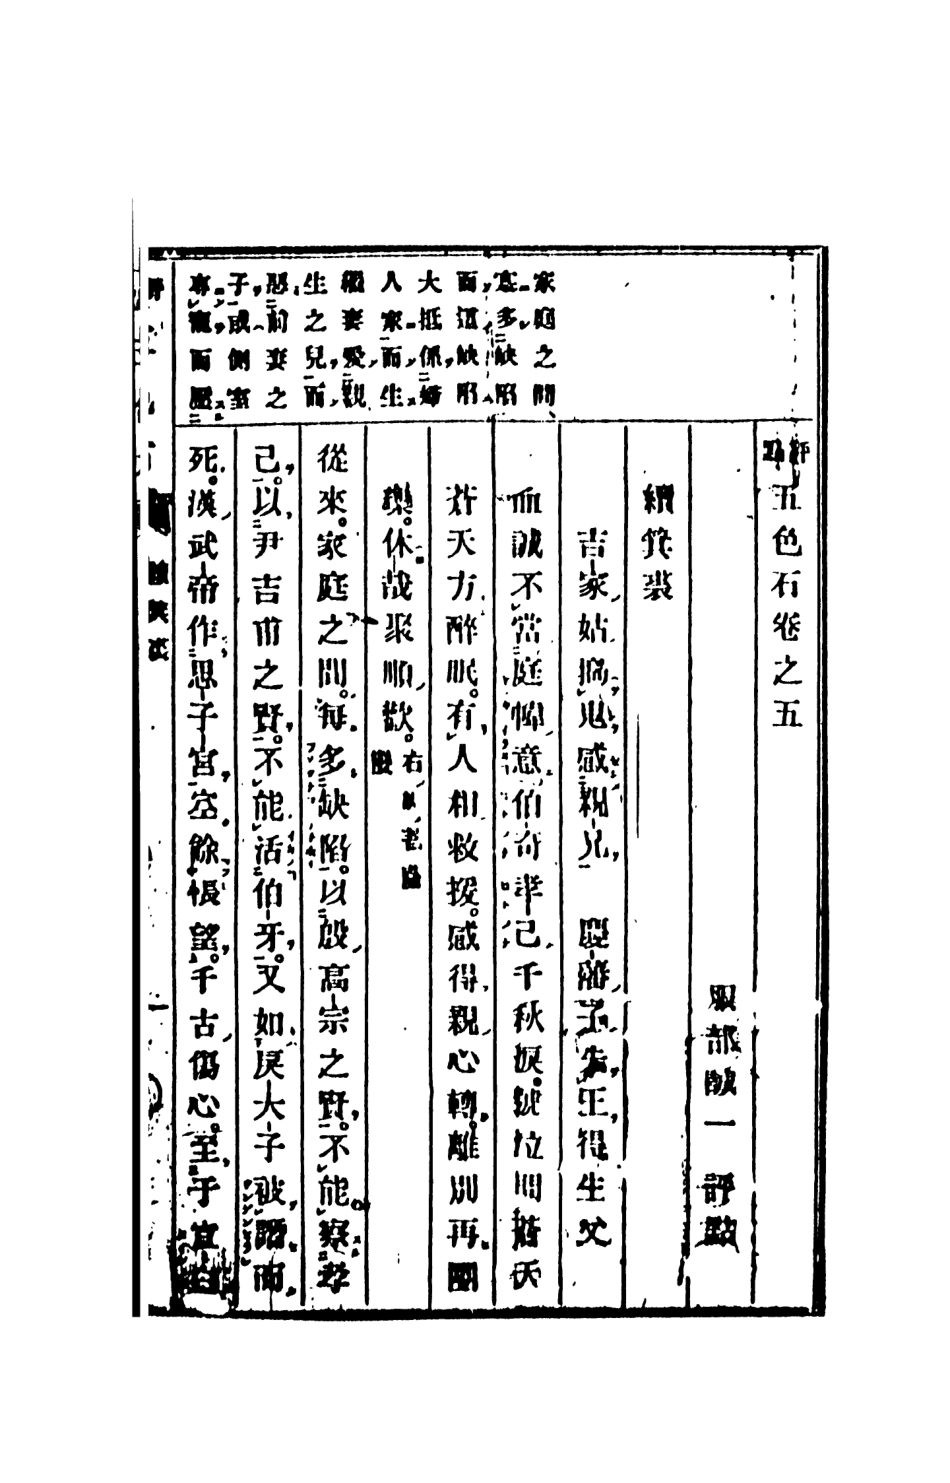 評點五色石卷之五
服部誠一 評點
續箕裘
吉家姑搗鬼感親兒 慶藩子失王得生父
血誠不當庭幃意伯奇孝己千秋淚號泣問蒼天
蒼天方醉眠。有人相救援。感得親心轉。離別再團
樂。休哉聚順歡。右
從來。家庭之間。每多缺陷。以殷高宗之賢。不能察孝
己。以尹吉甫之賢。不能活伯牙。又如戾太子被譖而
死。漢武帝作思子宮。空餘悵望。千古傷心。至于宜臼
家庭之間
多缺陷
而這缺陷
大抵係婦
人家而生
繼妻愛親
生之兒而
惡前妻之
子或側室
專寵而壓